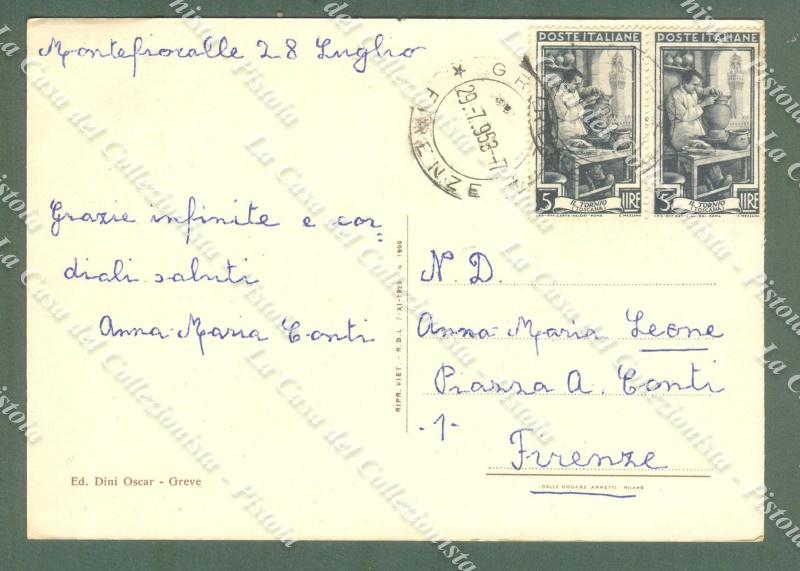 Montefioralle 28 Luglio
Grazie infinite e cor=
diali saluti
Anna-Maria Conti
Ed. Dini Oscar - Greve
RIPR. VIET. - R.D.L. 7-XI-1925 N. 1950
POSTE ITALIANE
5 IL TORNIO LIRE
(TOSCANA)
POSTE ITALIANE
5 IL TORNIO LIRE
(TOSCANA)
FIRENZE
29.-7.953-7
N. D.
Anna-Maria Leone
Piazza A. Conti
-1-
Firenze
La Casa del Collezionista - Pistoia